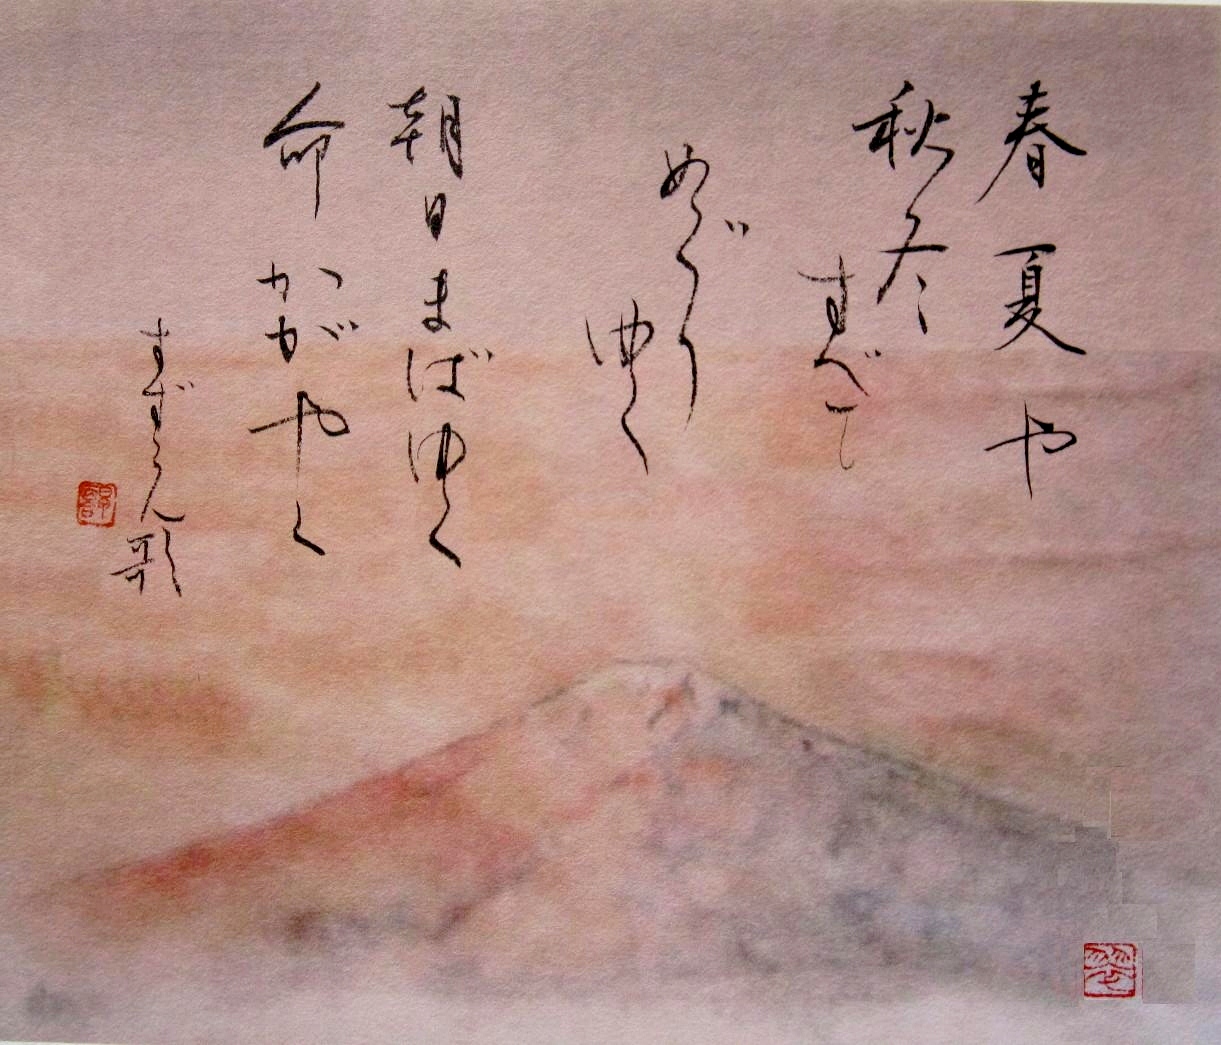 春夏や
秋冬すべて
めぐりゆく
朝日まばゆく
命かがやく
すずらん歌